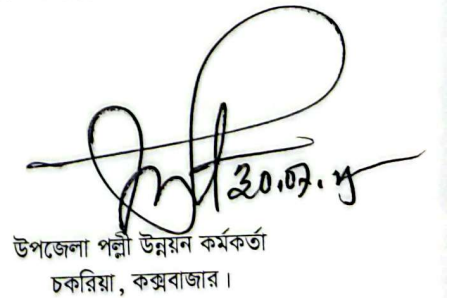 উপজেলা পল্লী উন্নয়ন কর্মকর্তা
চকরিয়া, কক্সবাজার।